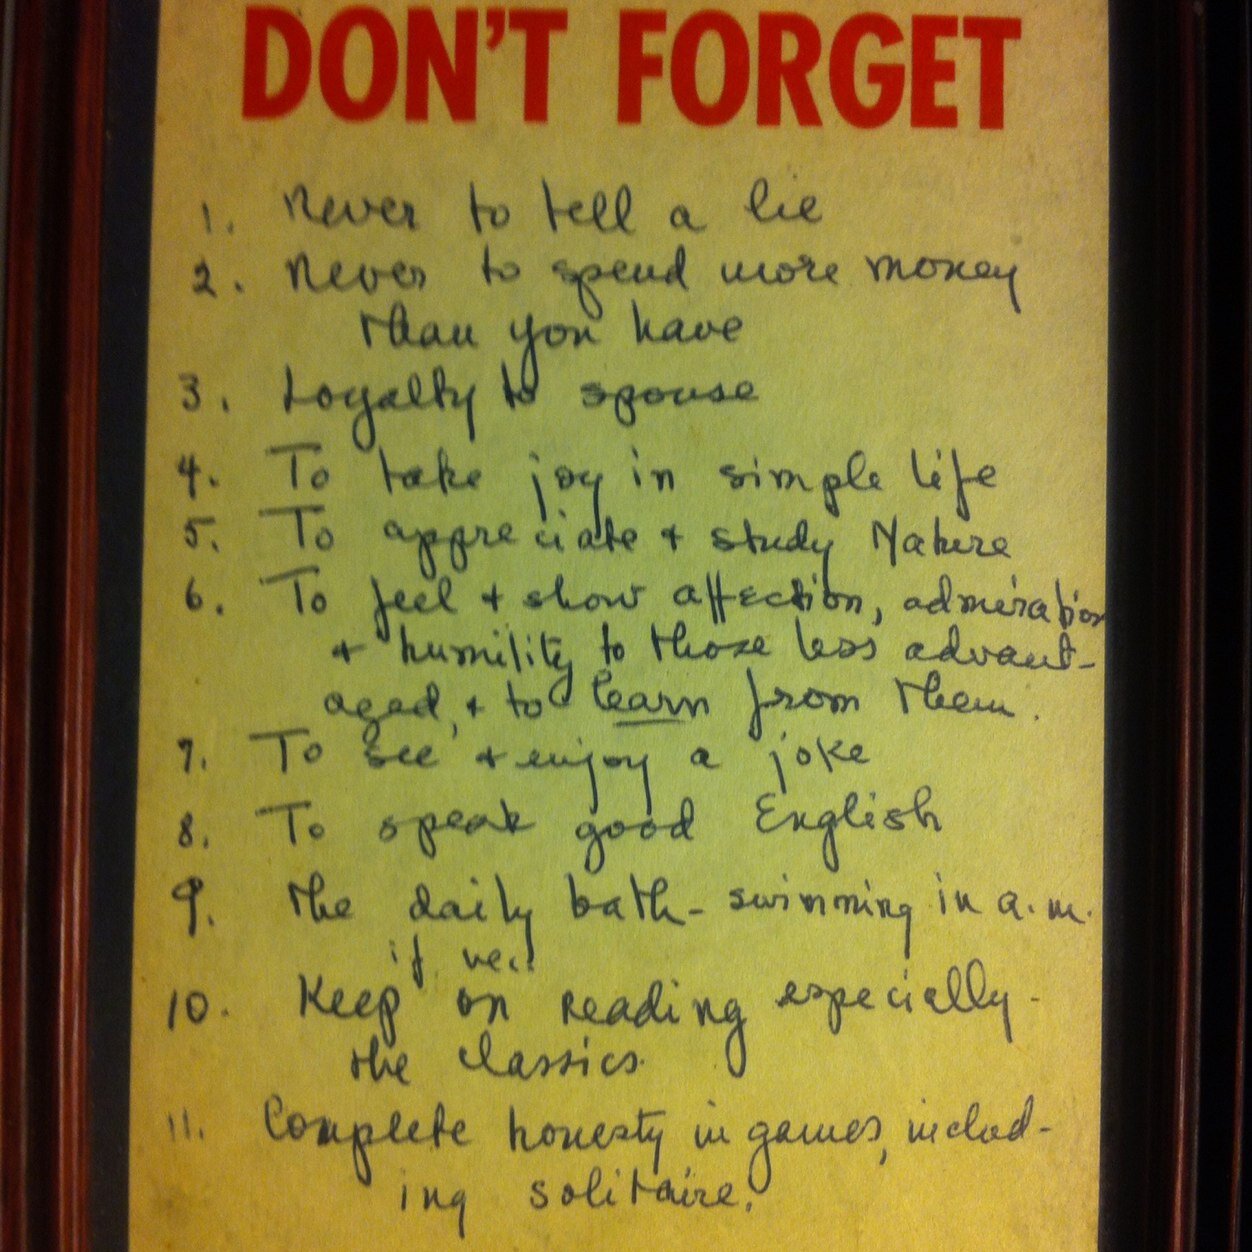 DON'T FORGET
1. Never to tell a lie
2. Never to spend more money
than you have
3. Loyalty to spouse
4. To take joy in simple life
5. To appreciate + study Nature
6. To feel + show affection, admiration
+ humility to those less advant-
aged, + to learn from them.
7. To see + enjoy a joke
8. To speak good English
9. The daily bath - swimming in a.m.
if nec.
10. Keep on reading especially
the classics.
11. Complete honesty in games, includ-
ing solitaire.